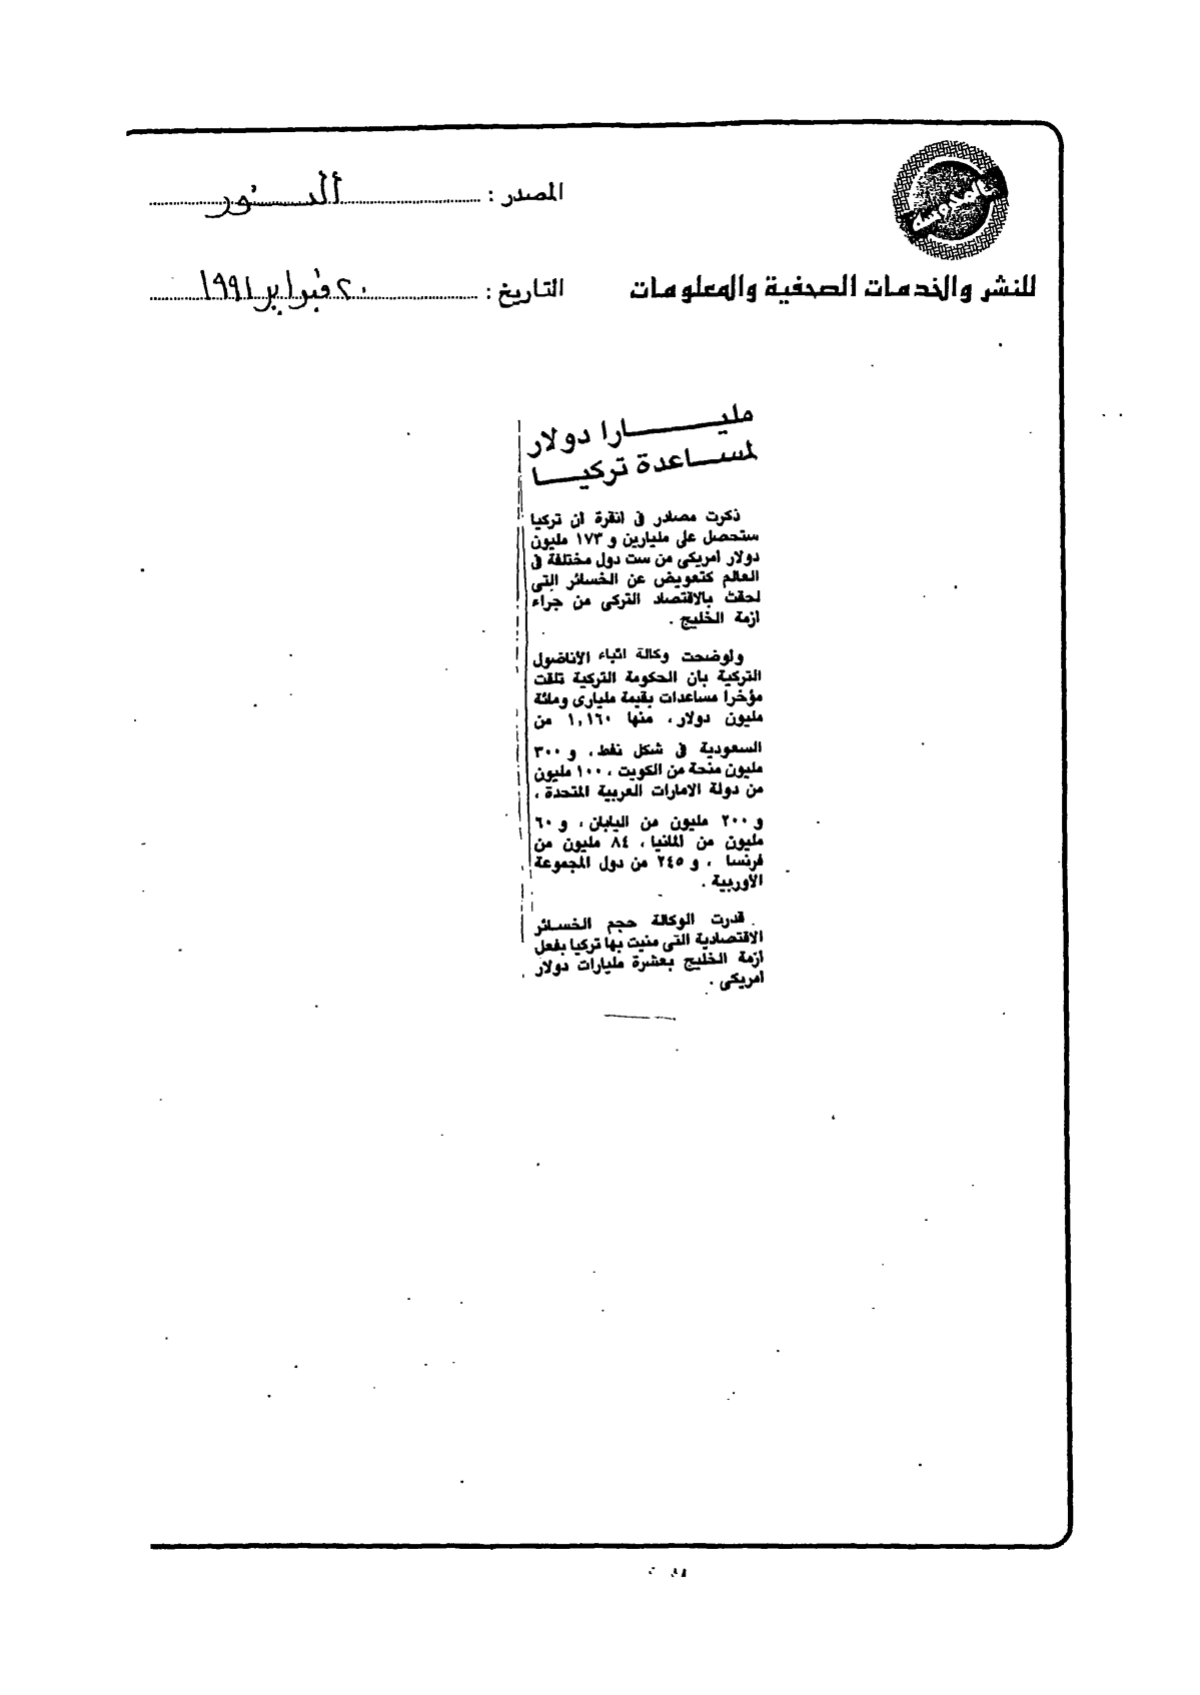 المصدر : النور
للنشر والخدمات الصحفية والمعلومات
التاريخ : ٢٠ فبراير ١٩٩١
مليارا دولار
لمساعدة تركيا
ذكرت مصادر في انقرة ان تركيا
ستحصل على مليارين و ١٧٣ مليون
دولار امريكى من ست دول مختلفة في
العالم كتعويض عن الخسائر التى
لحقت بالاقتصاد التركى من جراء
ازمة الخليج .
واوضحت وكالة انباء الأناضول
التركية بان الحكومة التركية تلقت
مؤخرا مساعدات بقيمة مليارى ومائة
مليون دولار، منها ١,١٦٠ من
السعودية في شكل نفط، و ٣٠٠
مليون منحة من الكويت ، ١٠٠ مليون
من دولة الامارات العربية المتحدة ،
و ٢٠٠ مليون من اليابان ، و ٦٠
مليون من المانيا ، ٨٤ مليون من
فرنسا ، و ٢٤٥ من دول المجموعة
الأوربية .
قدرت الوكالة حجم الخسائر
الاقتصادية التى منيت بها تركيا بفعل
ازمة الخليج بعشرة مليارات دولار
امريكى .